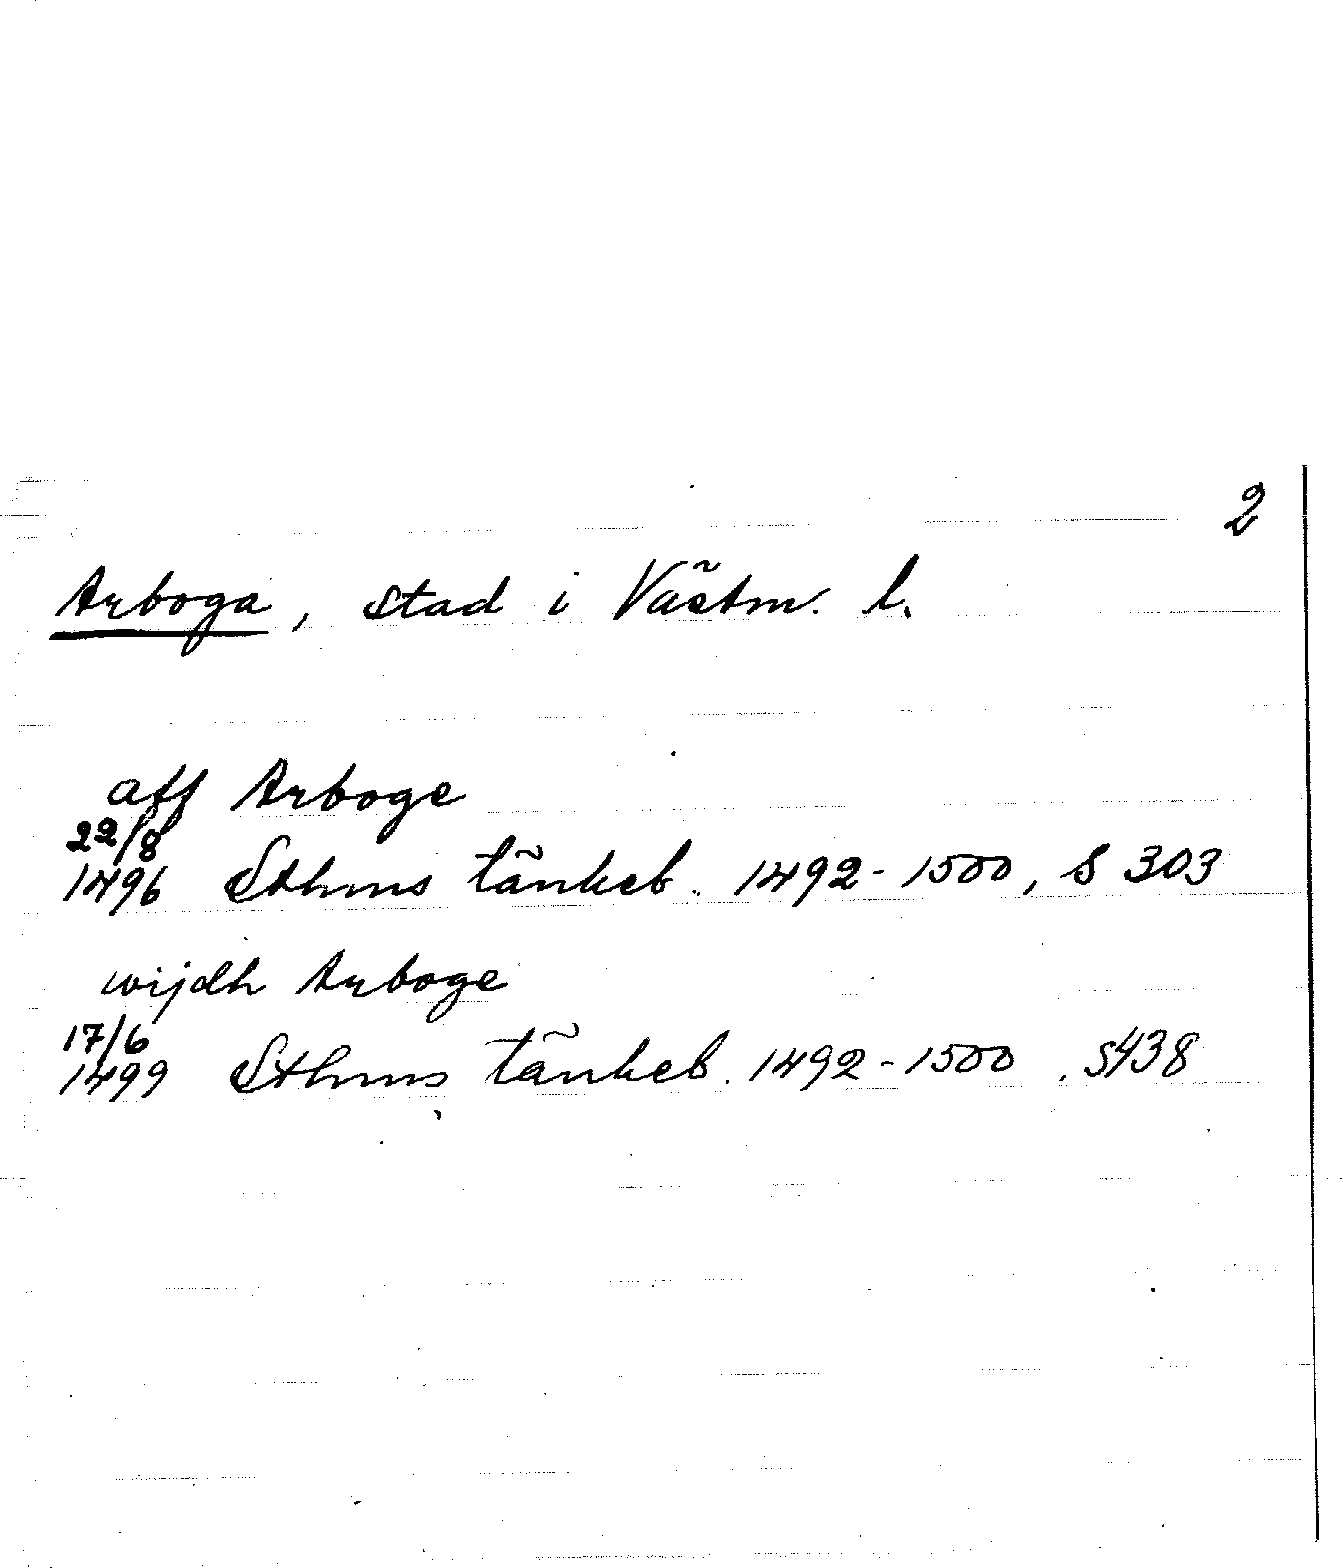 2
Arboga, stad i Västm. l.
aff Arboge
22/8
1496 Sthms tänkeb. 1492-1500, S 303
wijdh Arboge
17/6
1499 Sthms tänkeb. 1492-1500, S 438